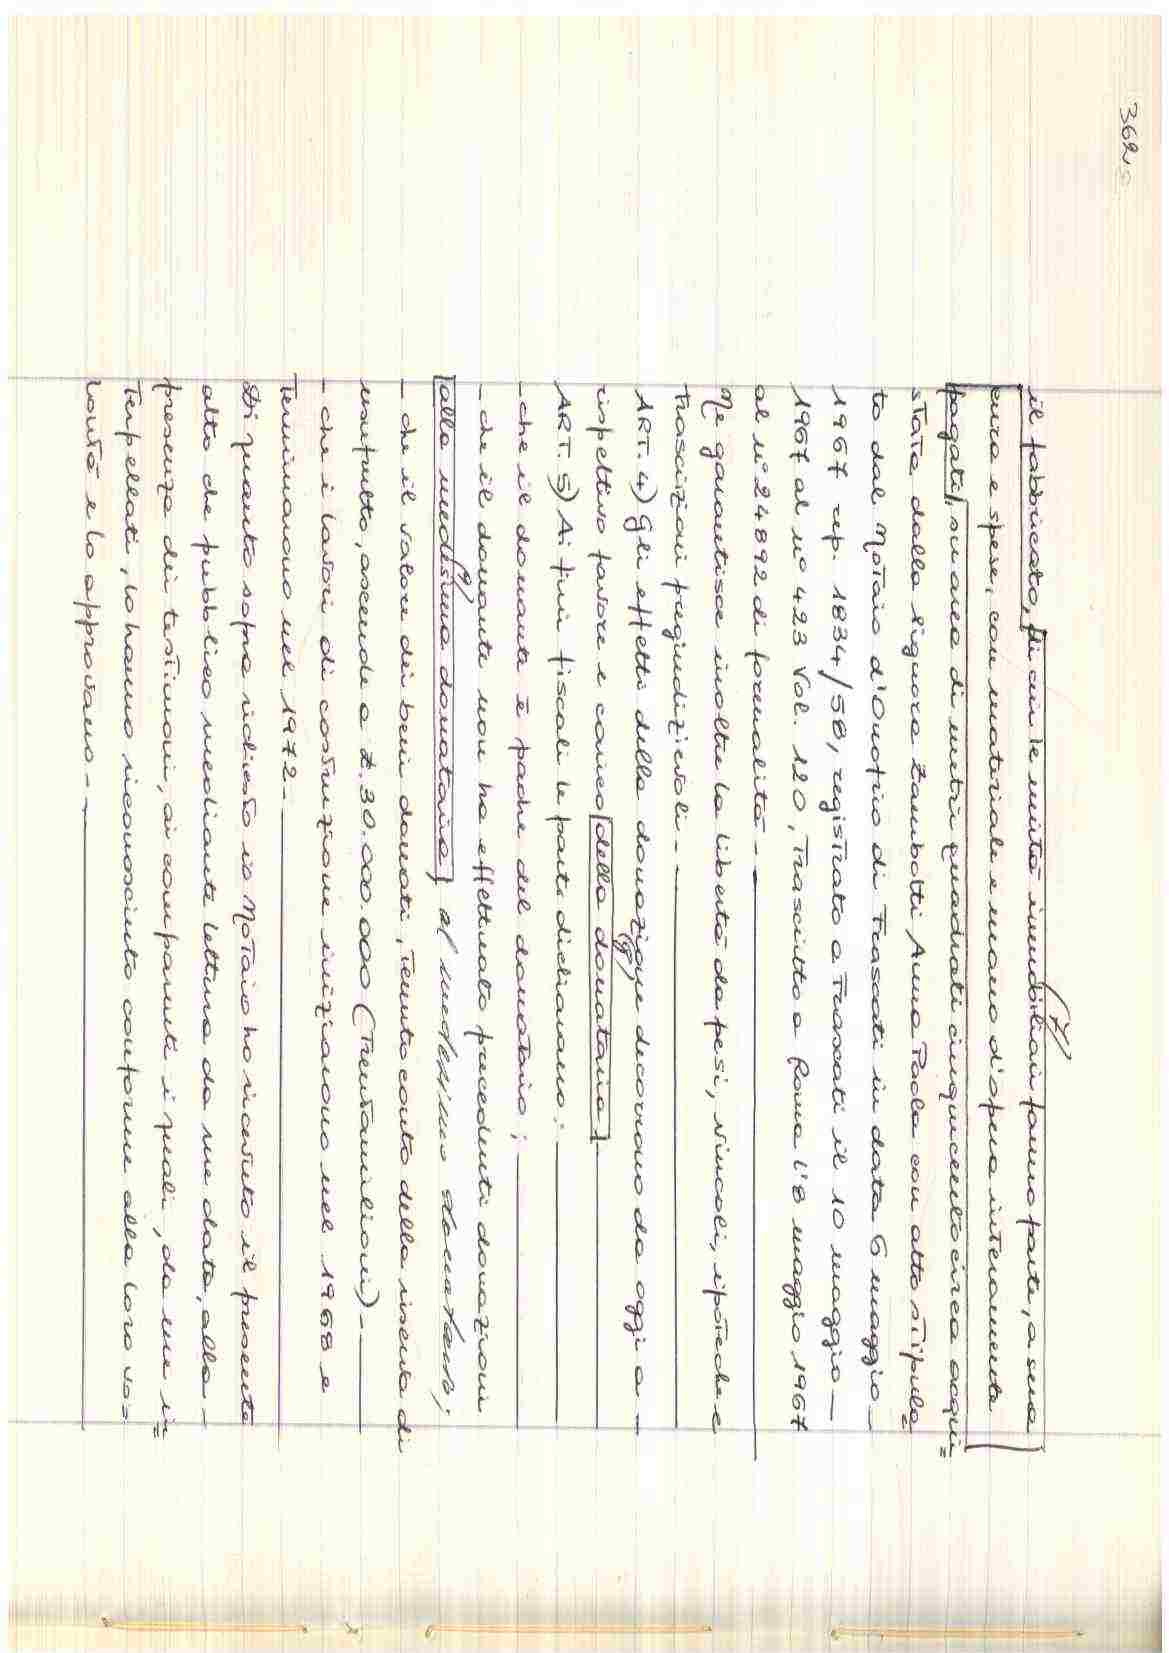 362
(7)
il fabbricato, di cui le unità immobiliari fanno parte, a sua
cura e spese, con materiale e mano d'opera interamente
pagati, su area di metri quadrati cinquecento circa acqui=
stata dalla signora Zambotti Anna Paola con atto stipula=
to dal Notaio d'Onofrio di Frascati in data 6 maggio -
1967 rep. 1834/58, registrato a Frascati il 10 maggio -
1967 al n° 423 Vol. 120, trascritto a Roma l'8 maggio 1967
al n° 24892 di formalità. -
Ne garantisce inoltre la libertà da pesi, vincoli, ipoteche e
trascrizioni pregiudizievoli. -
ART. 4) Gli effetti della donazione decorrono da oggi a -
(8)
rispettivo favore e carico della donataria.
ART. 5) Ai fini fiscali le parti dichiarano:
- che il donante è padre del donatario;
- che il donante non ha effettuato precedenti donazioni
(9)
alla medesima donataria, al medesimo donatario;
- che il valore dei beni donati, tenuto conto della riserva di
usufrutto, ascende a £. 30.000.000 (trentamilioni) -
- che i lavori di costruzione iniziarono nel 1968 e
terminarono nel 1972 -
Di quanto sopra richiesto io Notaio ho ricevuto il presente
atto che pubblico mediante lettura da me data, alla -
presenza dei testimoni, ai comparenti i quali, da me in=
terpellati, lo hanno riconosciuto conforme alla loro vo=
lontà e lo approvano. -